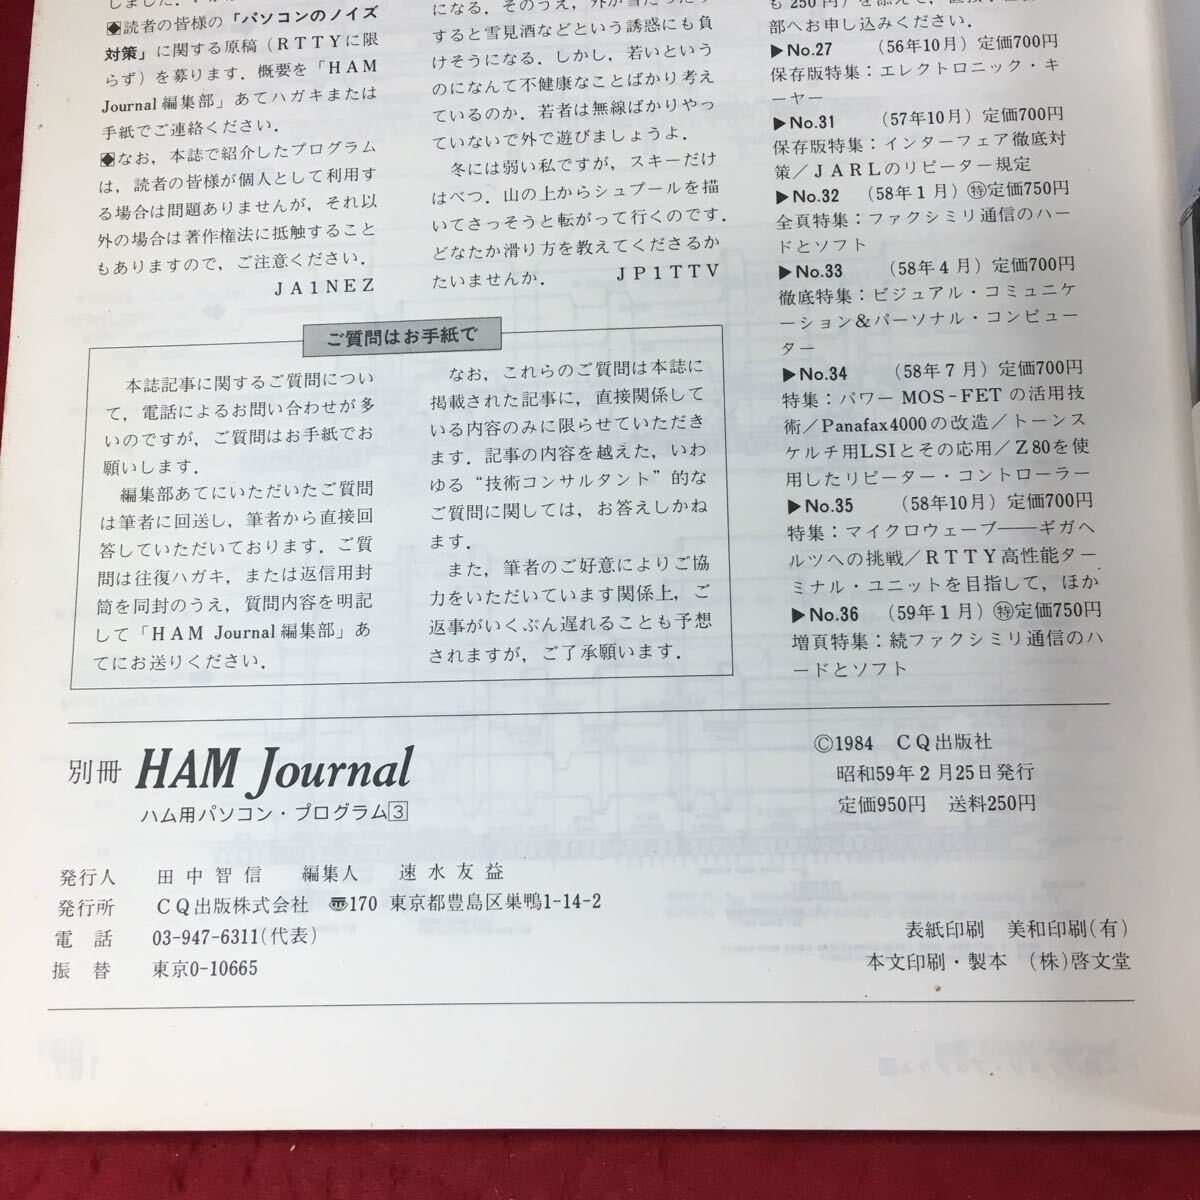 ◆読者の皆様の「パソコンのノイズ
対策」に関する原稿(RTTYに限
らず)を募ります.概要を「HAM
Journal編集部」あてハガキまたは
手紙でご連絡ください.
◆なお,本誌で紹介したプログラム
は,読者の皆様が個人として利用す
る場合は問題ありませんが,それ以
外の場合は著作権法に抵触すること
もありますので,ご注意ください.
JA1NEZ
すると雪見酒などという誘惑にも負
けそうになる.しかし,若いという
のになんて不健康なことばかり考え
ているのか.若者は無線ばかりやっ
ていないで外で遊びましょうよ.
冬には弱い私ですが,スキーだけ
はべつ.山の上からシュプールを描
いてさっそうと転がって行くのです.
どなたか滑り方を教えてくださるか
たいませんか. JP1TTV
部へお申し込みください.
▶No.27 (56年10月) 定価700円
保存版特集:エレクトロニック・キ
ーヤー
▶No.31 (57年10月) 定価700円
保存版特集:インターフェア徹底対
策/JARLのリピーター規定
▶No.32 (58年1月) ㊕定価750円
全頁特集:ファクシミリ通信のハー
ドとソフト
▶No.33 (58年4月) 定価700円
徹底特集:ビジュアル・コミュニケ
ーション&パーソナル・コンピュー
ター
▶No.34 (58年7月) 定価700円
特集:パワーMOS-FETの活用技
術/Panafax4000の改造/トーンス
ケルチ用LSIとその応用/Z80を使
用したリピーター・コントローラー
▶No.35 (58年10月) 定価700円
特集:マイクロウェーブ――ギガヘ
ルツへの挑戦/RTTY高性能ター
ミナル・ユニットを目指して,ほか
▶No.36 (59年1月) ㊕定価750円
増頁特集:続ファクシミリ通信のハ
ードとソフト
ご質問はお手紙で
本誌記事に関するご質問につい
て,電話によるお問い合わせが多
いのですが,ご質問はお手紙でお
願いします.
編集部あてにいただいたご質問
は筆者に回送し,筆者から直接回
答していただいております.ご質
問は往復ハガキ,または返信用封
筒を同封のうえ,質問内容を明記
して「HAM Journal編集部」あ
てにお送りください.
なお,これらのご質問は本誌に
掲載された記事に,直接関係して
いる内容のみに限らせていただき
ます.記事の内容を越えた,いわ
ゆる“技術コンサルタント”的な
ご質問に関しては,お答えしかね
ます.
また,筆者のご好意によりご協
力をいただいています関係上,ご
返事がいくぶん遅れることも予想
されますが,ご了承願います.
別冊 HAM Journal
ハム用パソコン・プログラム3
©1984 CQ出版社
昭和59年2月25日発行
定価950円 送料250円
発行人 田中智信 編集人 速水友益
発行所 CQ出版株式会社 〠170 東京都豊島区巣鴨1-14-2
電話 03-947-6311(代表)
振替 東京0-10665
表紙印刷 美和印刷(有)
本文印刷・製本 (株)啓文堂